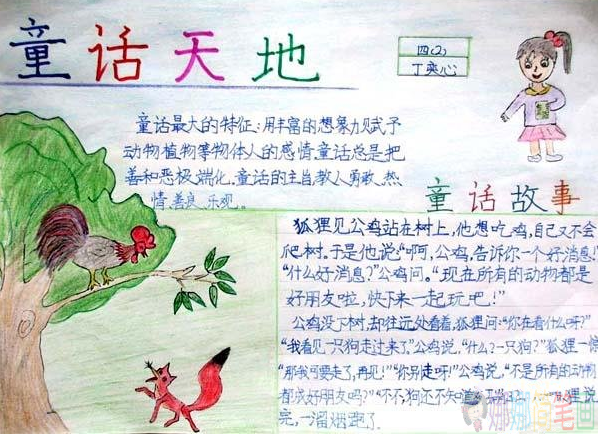 童话天地
四(2)
丁奕心
童话最大的特征:用丰富的想象力赋予
动物植物等物体人的感情,童话总是把
善和恶极端化.童话的主旨教人勇敢.热
情.善良.乐观。
童话故事
狐狸见公鸡站在树上,他想吃鸡,自己又不会
爬树。于是他说:“啊,公鸡,告诉你一个好消息!”
“什么好消息?”公鸡问。“现在所有的动物都是
好朋友啦,快下来一起玩吧!”
公鸡没下树,却往远处看着,狐狸问:“你在看什么呀?”
“我看见一只狗走过来了”公鸡说,“什么?一只狗?”狐狸一惊
“那我可要走了,再见!”“你别走呀!”公鸡说,“不是所有的动物
都成好朋友吗?”“不,不,狗还不知道
说
完,一溜烟跑了.
娜娜简笔画